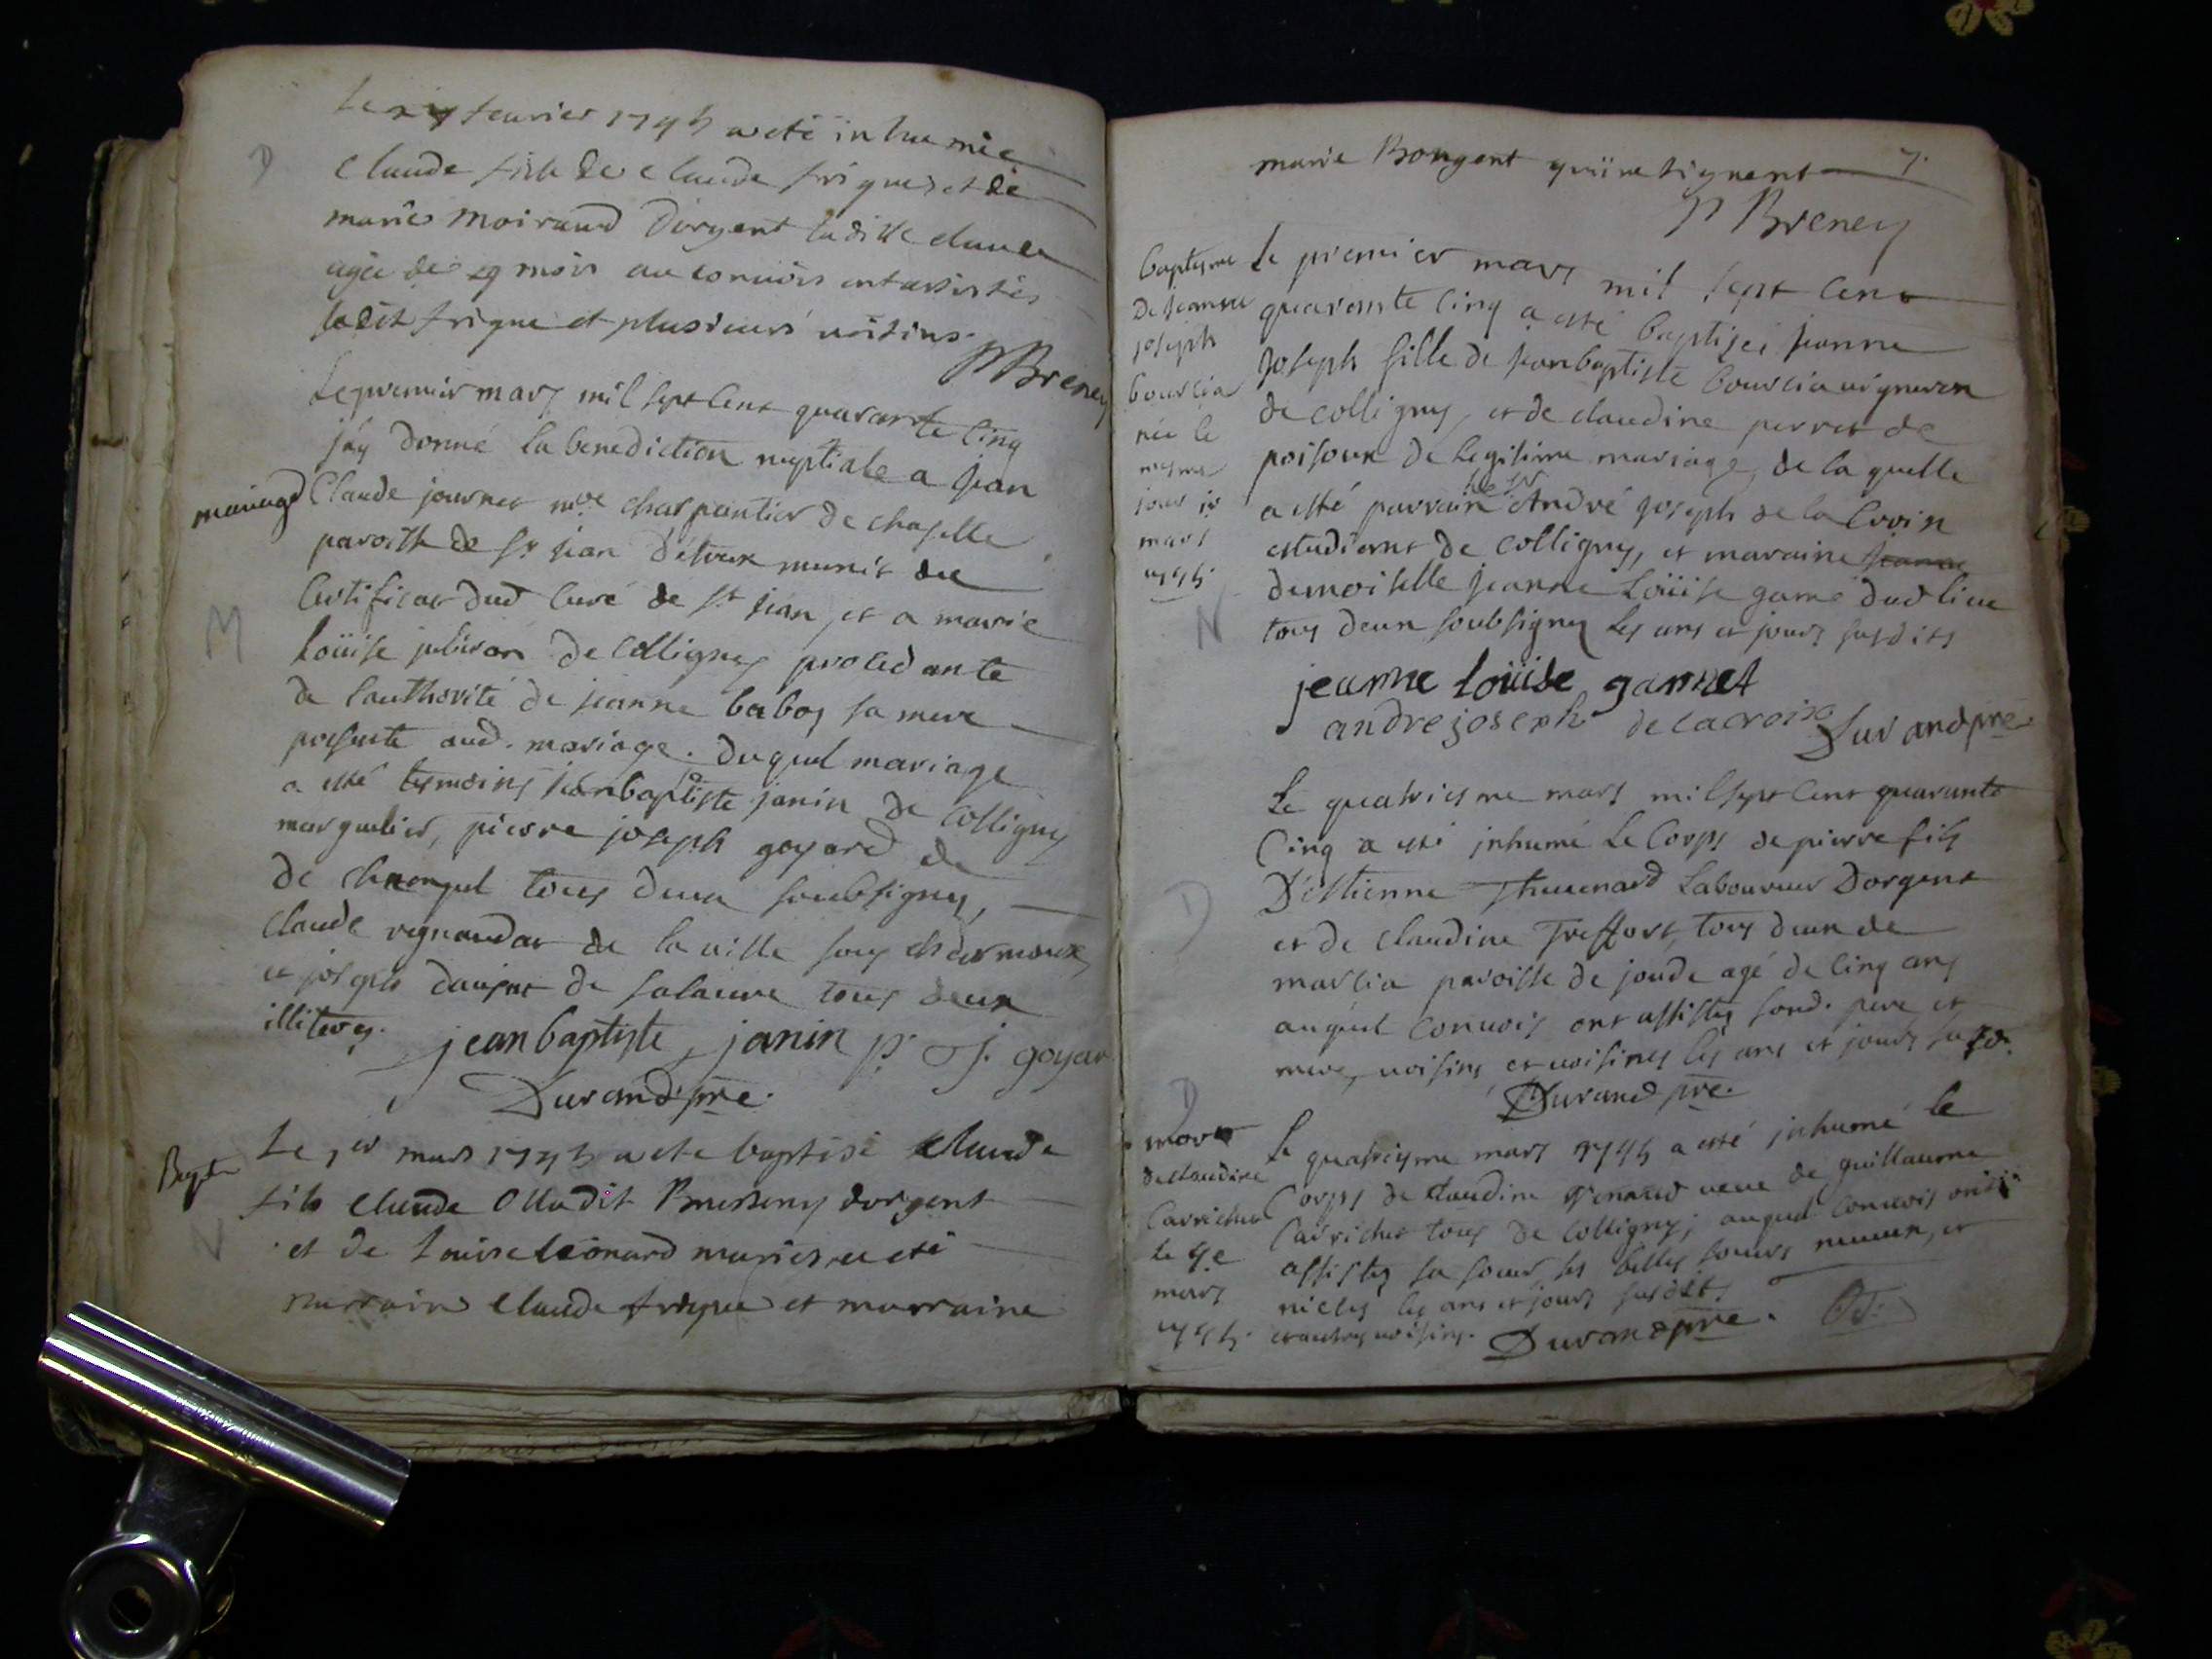 fevrier 1745 a eté inhumée
Claude fille de Claude frigue et de
marie moiraud D'orgent la ditte claude
agée de mois au convois ont assistés
ledit frigue et plusieurs voisins.
P Breney
Le premier mars mil sept cent quarante cinq
j'ay donné la benediction nuptiale a jean
mariage
Claude journet me charpantier de chaselle
paroisse de St jean d'etreux munit du
Certificat dud curé de St jean, et a marie
Loüise de Colligny procedante
de l'authorité de jeanne babog sa mere
presente aud. mariage. duquel mariage
a esté tesmoins jeanbaptiste janin de Colligny
marguelier, pierre joseph goyard de
de tous deux soubsignez,
Claude regnaudat de la ville sous charmoux
et joseph de salavre tous deux
illiterez.
jean baptiste janin p. J. goyar
Durand pre.
Bapte
Le 1er mars 1745 a ete baptisé Claude
fils Claude dorgent
et de Louise Leonard mariés, a eté
parrain Claude frigue et marraine
marie Bongent qui ne signent
7.
P Breney
baptesme
de jeanne
joseph
bourcia
née le
mesme
jour 1r
mars
1745.
Le premier mars mil sept cent
quarante cinq a esté baptizée jeanne
joseph fille de jeanbaptiste bourcia vigneron
de colligny, et de claudine perret de
poisoux de legitime mariage, de laquelle
a esté parrain le sr André joseph de la Croix
estudiant de colligny, et maraine jeanne
demoiselle jeanne Loüise game dud lieu
tous deux soubsignez les ans et jours susdits
jeanne loüise gannet
andre joseph de lacroix
Durand pre
Le quatriesme mars mil sept cent quarante
Cinq a esté inhumé le Corps de pierre fils
D'estienne Thuvenard Laboureur D'orgent
et de claudine Treffort, tous deux de
marcia paroisse de joude agé de cinq ans
auquel convois ont assistez sond. pere et
mere, voisins et voisines les ans et jours susd.
Durand pre.
mort
de claudine
Carrichet
le 4e
mars
1745.
Le quatriesme mars 1745 a esté inhumé le
Corps de claudine veuve de guillaume
Carrichet tous de Colligny; auquel convois ont
assistez sa soeur, ses belles soeurs neveux, et
nieces les ans et jours susdits
et autres voisins. Durand pre.